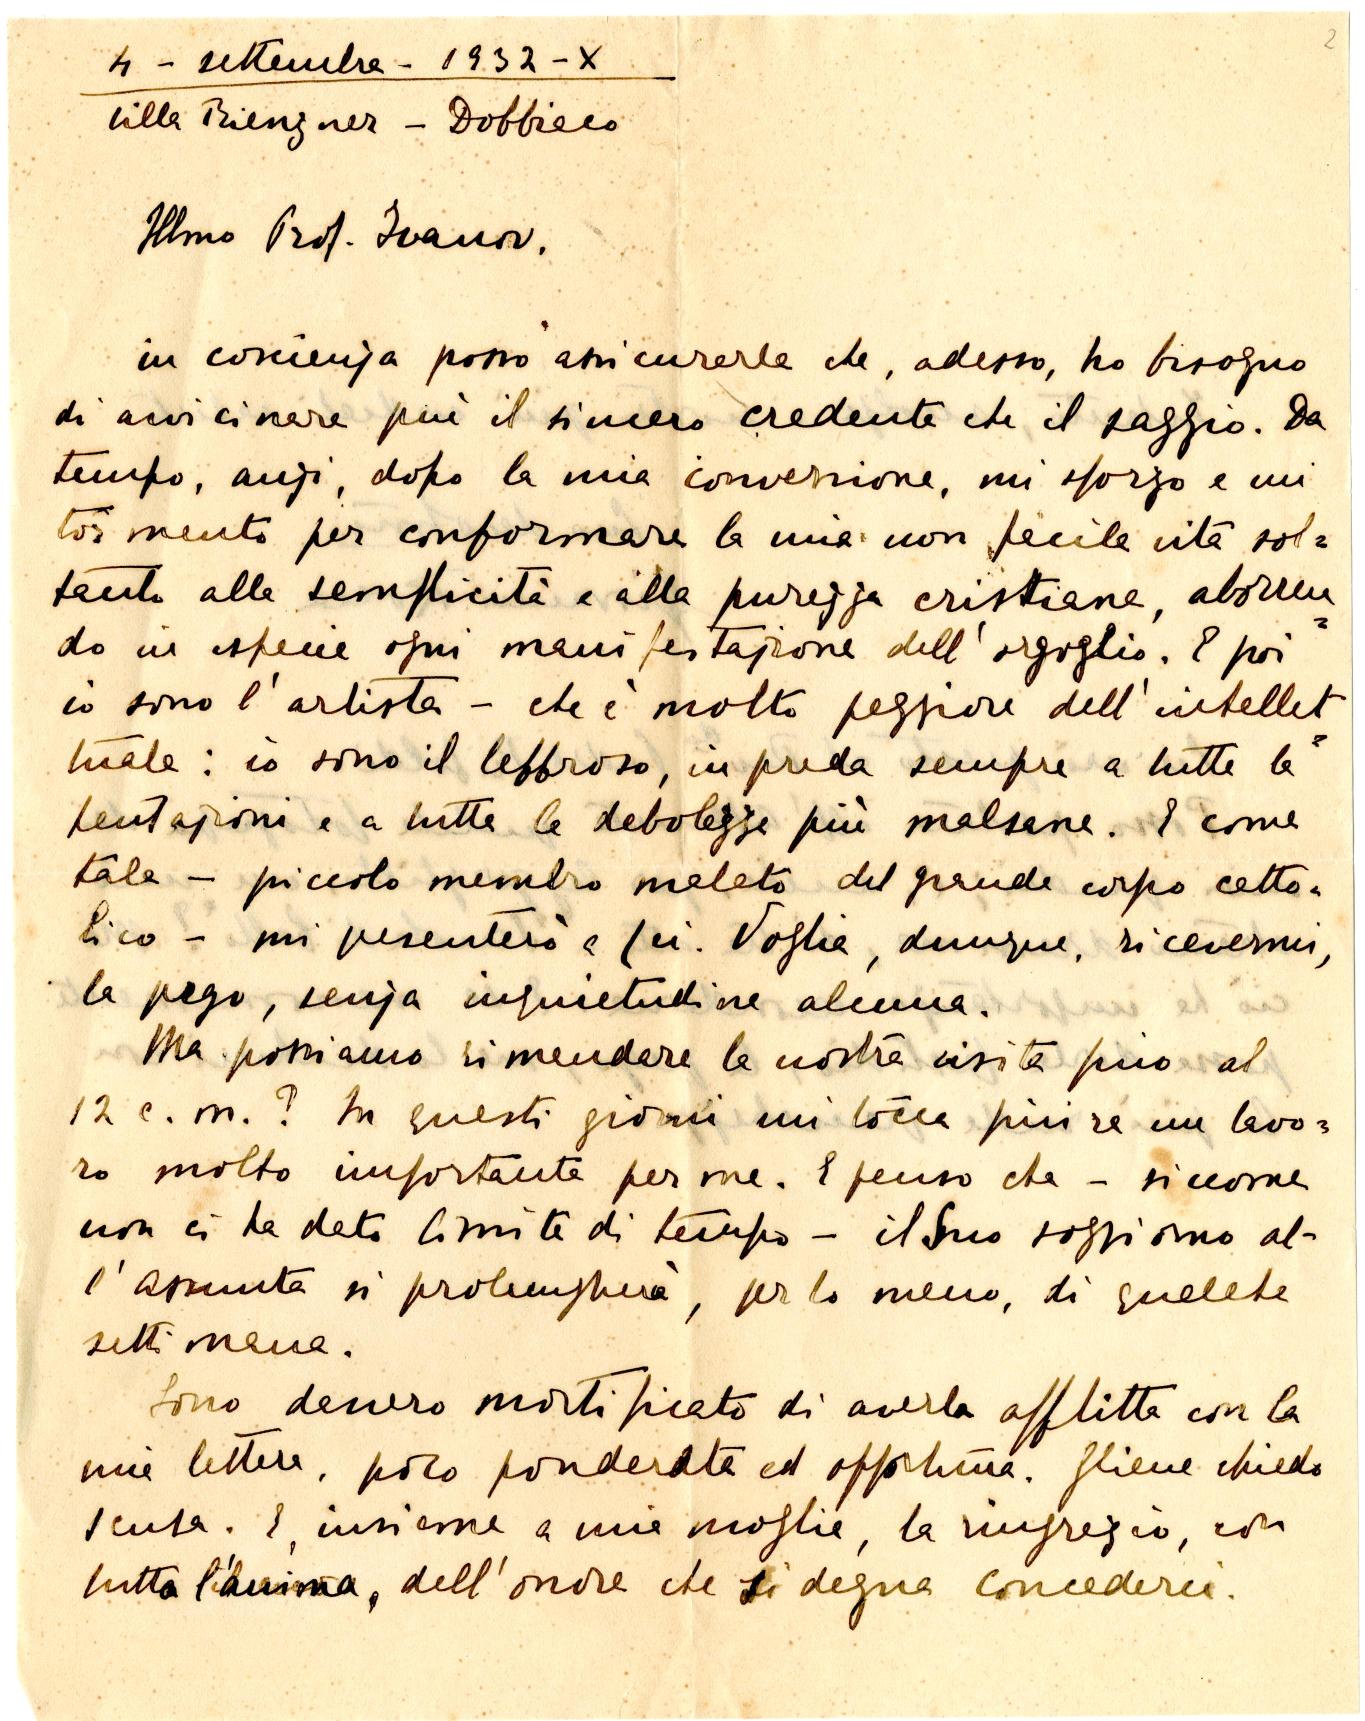 2
4 - settembre - 1932 - X
Villa Biengner - Dobbiaco
Ill.mo Prof. Ivanov,
in coscienza posso assicurarle che, adesso, ho bisogno
di avvicinare più il sincero credente che il saggio. Da
tempo, anzi, dopo la mia conversione, mi sforzo e mi
tormento per conformare la mia non facile vita sol=
tanto alla semplicità e alla purezza cristiane, aborren=
do in specie ogni manifestazione dell'orgoglio. E poi
io sono l'artista - che è molto peggiore dell'intellet=
tuale: io sono il lebbroso, in preda sempre a tutte le
tentazioni e a tutte le debolezze più malsane. E come
tale - piccolo membro malato del grande corpo catto=
lico - mi presenterò a Lei. Voglia, dunque, ricevermi,
la prego, senza inquietudine alcuna.
Ma possiamo rimandare la nostra visita fino al
12 c. m.? In questi giorni mi tocca finire un lavo=
ro molto importante per me. E penso che - siccome
non ci ha dato limite di tempo - il Suo soggiorno al-
l'Assunta si prolungherà, per lo meno, di qualche
settimana.
Sono davvero mortificato di averla afflitta con la
mia lettera, poco ponderata ed opportuna. Gliene chiedo
scusa. E, insieme a mia moglie, la ringrazio, con
tutta l'anima, dell'onore che si degna concederci.